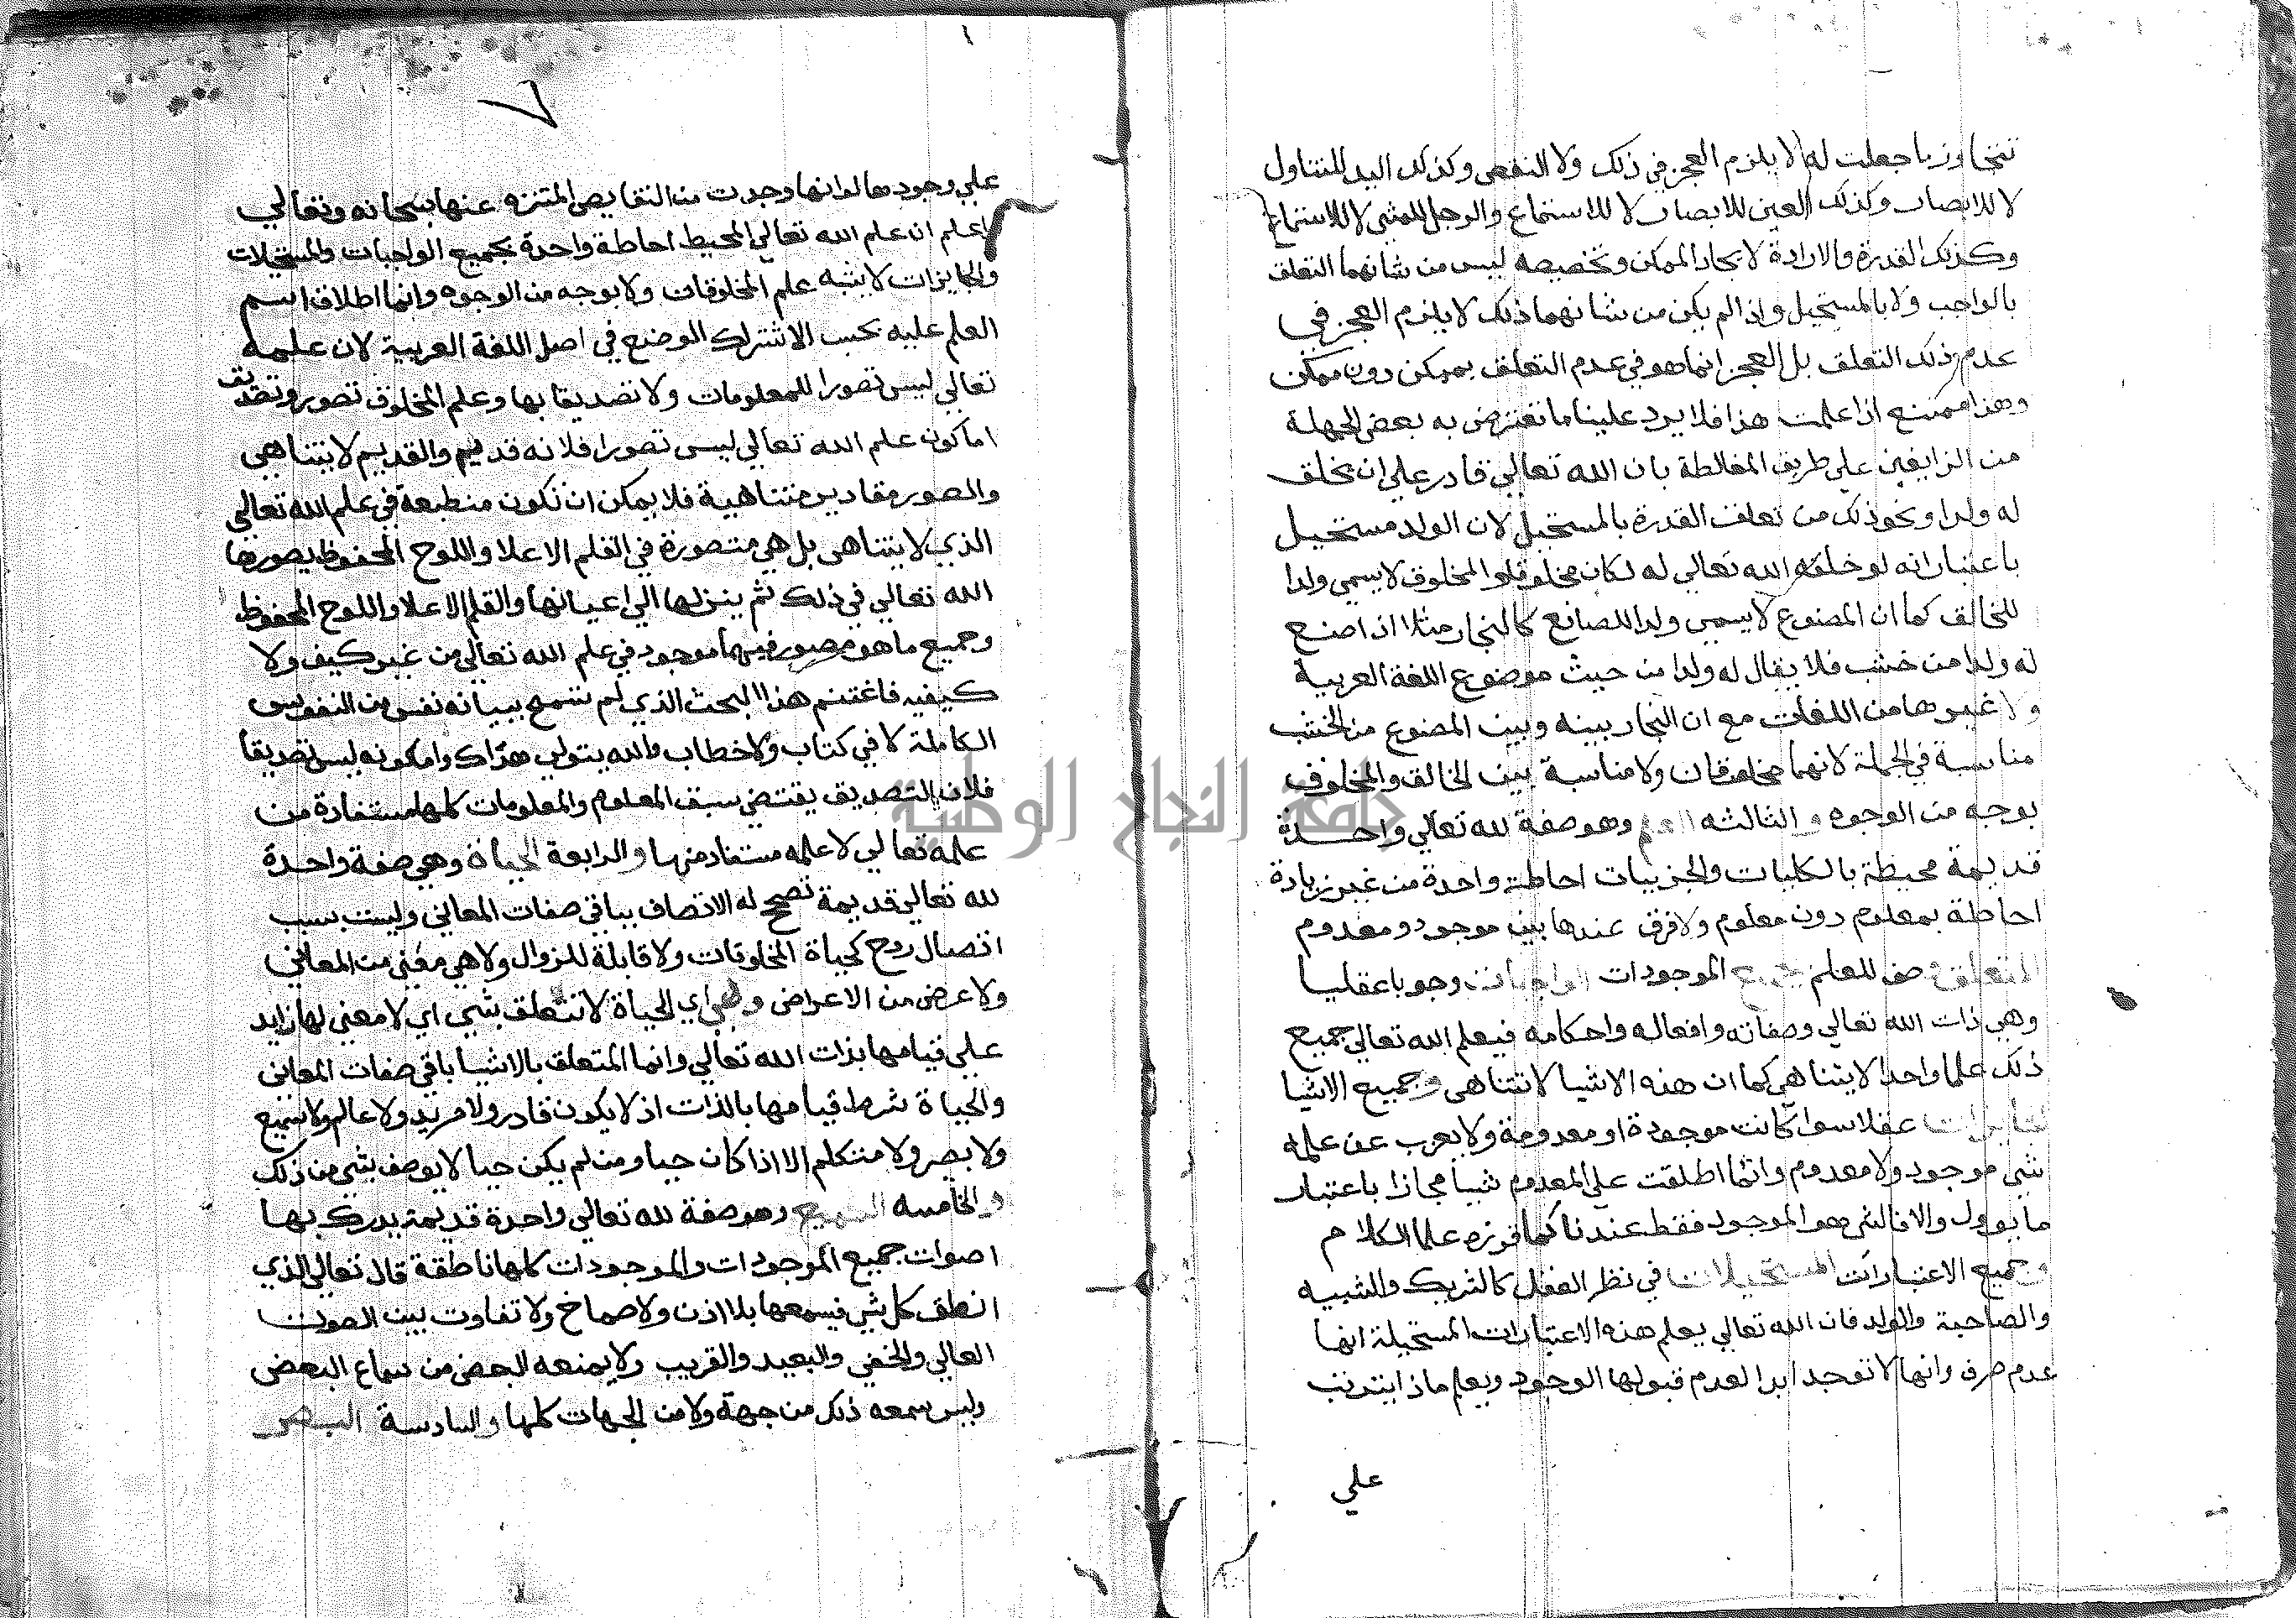 تتجاوز ما جعلت له لا يلزم العجز في ذلك ولا النقص وكذلك اليد للتناول
لا للابصار وكذلك العين للابصار لا للاستماع والرجل للمشي لا للاستماع
وكذلك القدرة والارادة لايجاد الممكن وتخصيصه ليس من شانهما التعلق
بالواجب ولا بالمستحيل واذا لم يكن من شانهما ذلك لا يلزم العجز في
عدم ذلك التعلق بل العجز انما هو في عدم التعلق بممكن دون ممكن
وهذا ممتنع اذا علمت هذا فلا يرد علينا ما تعترض به بعض الجهلة
من الزايغين على طريق المغالطة بان الله تعالي قادر علي ان يخلق
له ولدا ونحو ذلك من تعلق القدرة بالمستحيل لان الولد مستحيل
باعتبار انه لو خلقه الله تعالي له لكان مخلوقا والمخلوق لا يسمي ولدا
للخالق كما ان المصنوع لا يسمي ولدا للصانع كالنجار مثلا اذا صنع
له ولدا من خشب فلا يقال له ولدا من حيث موضوع اللغة العربية
ولا غيرها من اللغات مع ان النجار بينه وبين المصنوع من الخشب
مناسبة في الجملة لانهما مخلوقان ولا مناسبة بين الخالق والمخلوق
بوجه من الوجوه والثالثه العلم وهو صفة لله تعالي واحدة
قديمة محيطة بالكليات والجزييات احاطة واحدة من غير زيادة
احاطة بمعلوم دون معلوم ولا فرق عندها بين موجود ومعدوم
المتعلق للعلم جميع الموجودات الواجبات وجوبا عقليا
وهي ذات الله تعالي وصفاته وافعاله واحكامه فيعلم الله تعالي جميع
ذلك علما واحدا لا يتناهي كما ان هذه الاشيا لا تتناهي وجميع الاشيا
الجايزات عقلا سوا كانت موجودة او معدومة ولا يعزب عن علمه
شي موجود ولا معدوم وانما اطلقت علي المعدوم شيا مجازا باعتبار
ما يوول والا فالشي هو الموجود فقط عندنا كما قرره علما الكلام
وجميع الاعتبارات المستحيلات في نظر العقل كالشريك والشبيه
والصاحبة والولد فان الله تعالي يعلم هذه الاعتبارات المستحيلة انها
عدم صرف وانها لا توجد ابدا لعدم قبولها الوجود ويعلم ماذا يترتب
علي
٧
علي وجودها لو انها وجدت من النقايص المتنزه عنها سبحانه وتعالي
واعلم ان علم الله تعالي المحيط احاطة واحدة بجميع الواجبات والمستحيلات
والجايزات لا يشبه علم المخلوقات ولا بوجه من الوجوه وانما اطلاق اسم
العلم عليه بحسب الاشتراك الوضع في اصل اللغة العربية لان علمه
تعالي ليس تصورا للمعلومات ولا تصديقا بها وعلم المخلوق تصور وتصديق
اما كون علم الله تعالي ليس تصورا فلانه قديم والقديم لا يتناهي
والصور مقادير متناهية فلا يمكن ان تكون منطبعة في علم الله تعالي
الذي لا يتناهى بل هي متصورة في القلم الاعلا واللوح المحفوظ يصورها
الله تعالي في ذلك ثم ينزلها الي اعيانها والقلم الاعلا واللوح المحفوظ
وجميع ما هو مصور فيهما موجود في علم الله تعالي من غير كيف ولا
كيفيه فاغتنم هذا البحث الذي لم تسمح ببيانه نفس من النفوس
الكاملة لا في كتاب ولا خطاب والله يتولي هداك واما كونه ليس تصديقا
فلان التصديق يقتضي سبق المعلوم والمعلومات كلها مستفادة من
علمه تعالي لا علمه مستفاد منها والرابعة الحياة وهي صفة واحدة
لله تعالي قديمة تصحح له الاتصاف بباقي صفات المعاني وليست بسبب
اتصال روح كحياة المخلوقات ولا قابلة للزوال ولا هي معني من المعاني
ولا عرض من الاعراض وهي اي الحياة لا تتعلق بشي اي لا معني لها زايد
علي قيامها بذات الله تعالي وانما المتعلق بالاشيا باقي صفات المعاني
والحياة شرط قيامها بالذات اذ لا يكون قادر ولا مريد ولا عالم ولا سميع
ولا بصير ولا متكلم الا اذا كان حيا ومن لم يكن حيا لا يوصف بشي من ذلك
والخامسه السميع وهو صفة لله تعالي واحدة قديمة يدرك بها
اصوات جميع الموجودات والموجودات كلها ناطقة قال تعالي الذي
انطق كل شي فيسمعها بلا اذن ولا صماخ ولا تفاوت بين الصوت
العالي والخفي والبعيد والقريب ولا يمنعه البعض من سماع البعض
وليس سمعه ذلك من جهة ولا من الجهات كلها والسادسة البصر
جامعة النجاح الوطنية